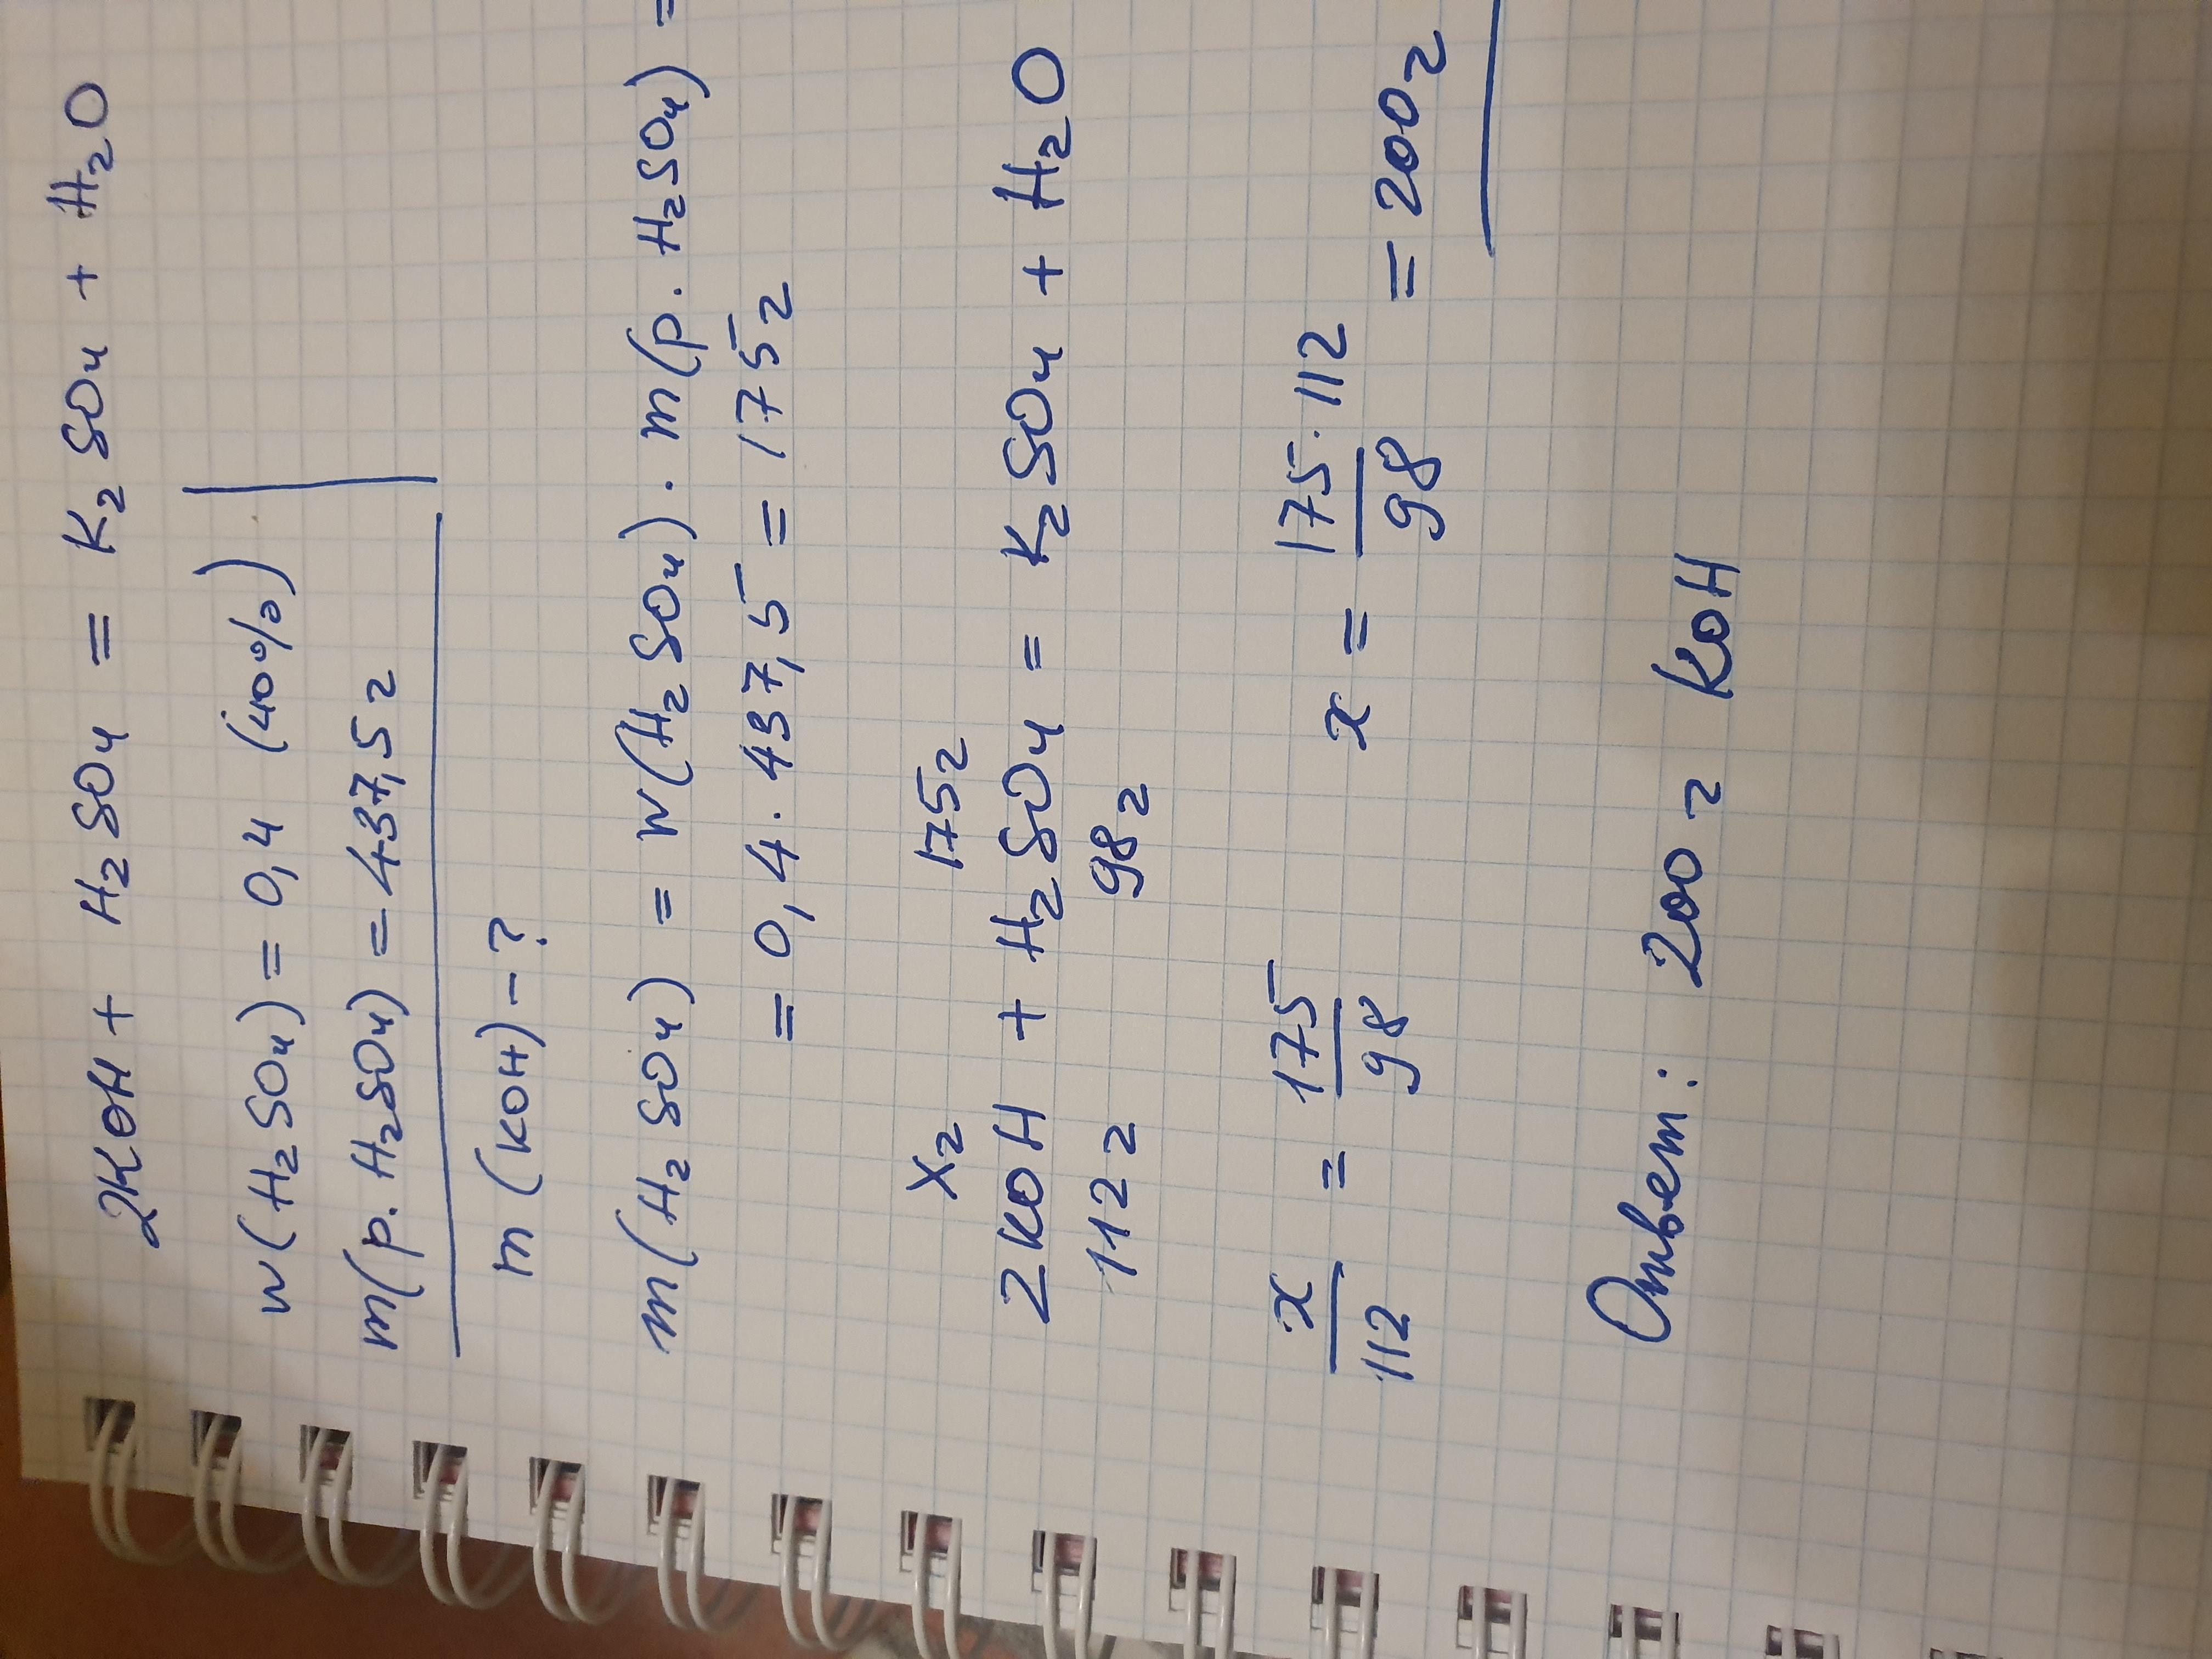 2KOH + H₂SO₄ = K₂SO₄ + H₂O
w(H₂SO₄) = 0,4 (40%)
m(р. H₂SO₄) = 437,5 г
m(KOH) - ?
m(H₂SO₄) = w(H₂SO₄) · m(р. H₂SO₄) =
= 0,4 · 437,5 = 175 г
x г 175 г
2KOH + H₂SO₄ = K₂SO₄ + H₂O
112 г 98 г
x/112 = 175/98 x = 175·112/98 = 200 г
Ответ: 200 г KOH